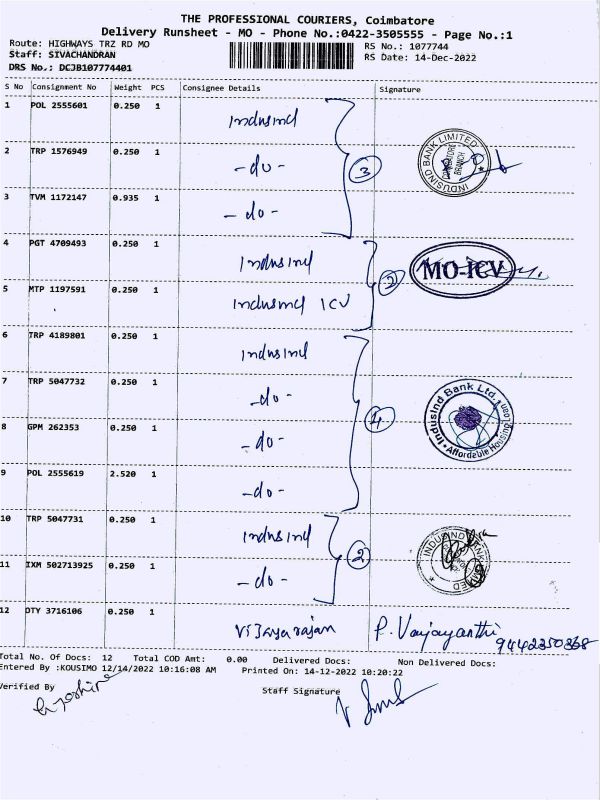 THE PROFESSIONAL COURIERS, Coimbatore
Delivery Runsheet - MO - Phone No.:0422-3505555 - Page No.:1
Route: HIGHWAYS TRZ RD MO RS No.: 1077744
Staff: SIVACHANDRAN RS Date: 14-Dec-2022
DRS No.: DCJB107774401
S No Consignment No Weight PCS Consignee Details Signature
1 POL 2555601 0.250 1 Indusind
2 TRP 1576949 0.250 1 -do- 3 INDUSIND BANK LIMITED COIMBATORE BRANCH
3 TVM 1172147 0.935 1 -do-
4 PGT 4709493 0.250 1 Indusind MO-ICV
5 MTP 1197591 0.250 1 Indusind ICV
6 TRP 4189801 0.250 1 Indusind
7 TRP 5047732 0.250 1 -do- 4 IndusInd Bank Ltd. Affordable Housing Loan
8 GPM 262353 0.250 1 -do-
9 POL 2555619 2.520 1 -do-
10 TRP 5047731 0.250 1 Indusind 2 INDUSIND BANK LIMITED
11 IXM 502713925 0.250 1 -do-
12 DTY 3716106 0.250 1 Vijayarajan P. Vaijayanthi
9442350368
Total No. Of Docs: 12 Total COD Amt: 0.00 Delivered Docs: Non Delivered Docs:
Entered By :KOUSIMO 12/14/2022 10:16:08 AM Printed On: 14-12-2022 10:20:22
Verified By Staff Signature